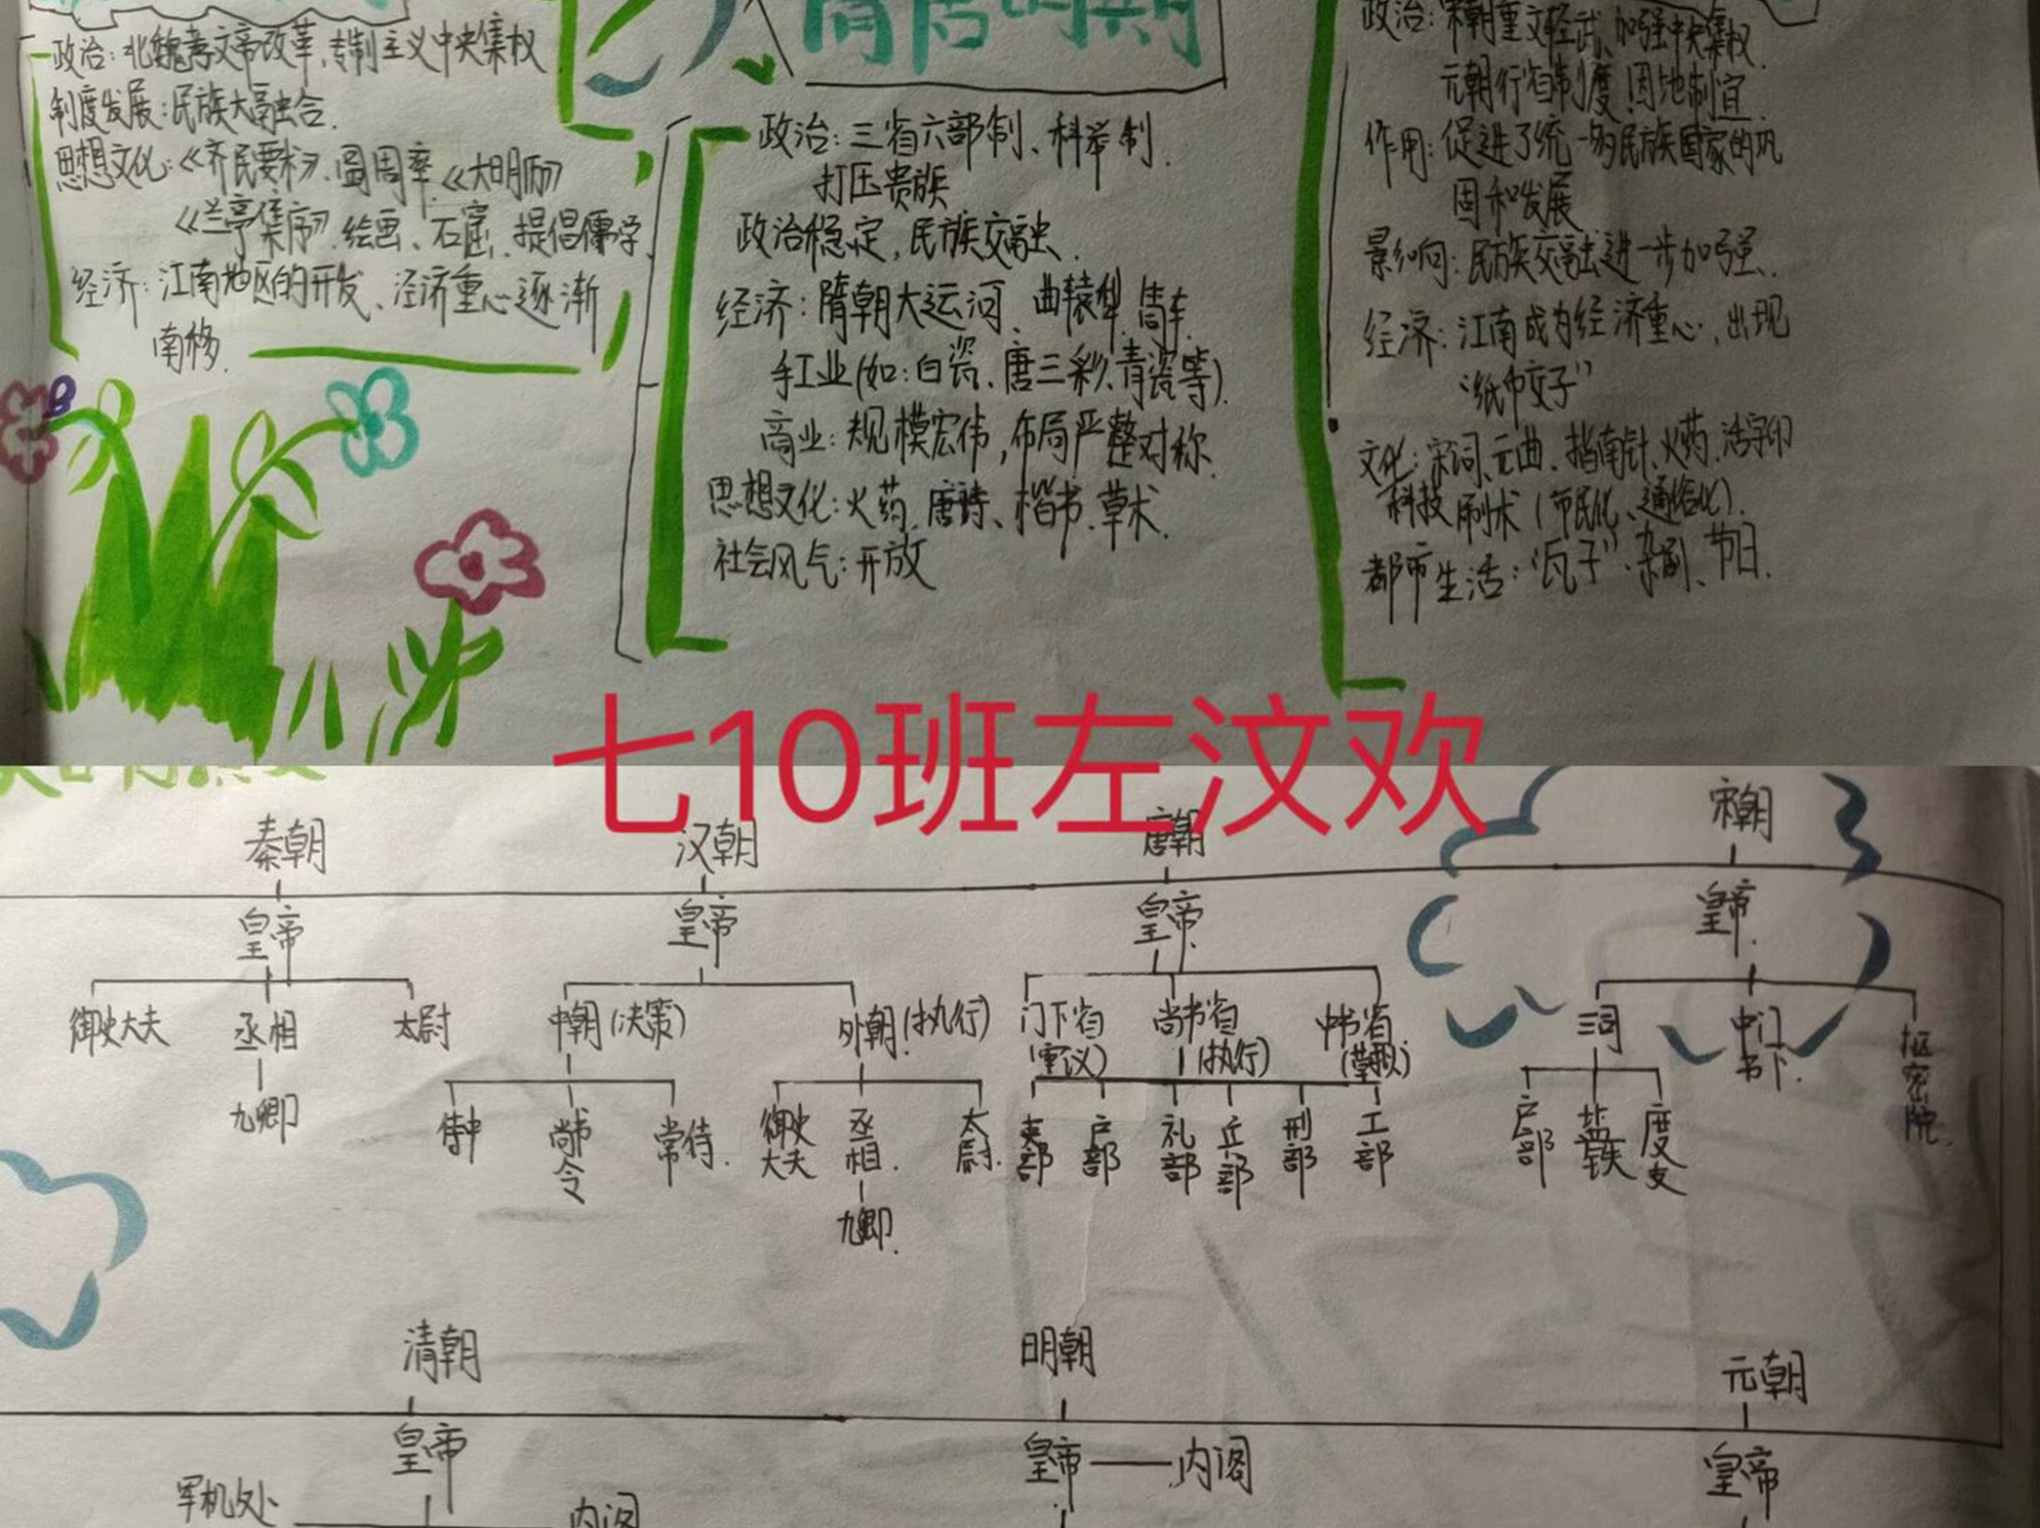 政治：北魏孝文帝改革，专制主义中央集权
制度发展：民族大融合．
思想文化：《齐民要术》．圆周率《大明历》
《兰亭集序》．绘画、石窟、提倡儒学、
经济：江南地区的开发、经济重心逐渐
南移．
隋唐时期
政治：三省六部制、科举制．
打压贵族
政治稳定，民族交融．
经济：隋朝大运河、曲辕犁．筒车．
手工业(如：白瓷、唐三彩、青瓷等)．
商业：规模宏伟，布局严整对称．
思想文化：火药．唐诗、楷书．草术．
社会风气：开放
政治：宋朝重文轻武、加强中央集权．
元朝行省制度！因地制宜
作用：促进了统一多民族国家的巩
固和发展
影响：民族交融进一步加强．
经济：江南成为经济重心．出现
“纸币交子”
文化：宋词、元曲．指南针、火药．活字印
科技 刷术（市民化、通俗化)．
都市生活：“瓦子”．杂剧、节日．
七10班左汶欢
秦朝 汉朝 唐朝 宋朝
皇帝 皇帝 皇帝． 皇帝．
御史大夫 丞相 太尉 中朝(决策) 外朝．(执行) 门下省(审议) 尚书省(执行) 中书省(草拟) 三司 中书门下． 枢密院．
九卿 侍中 尚书令 常侍． 御史大夫 丞相． 太尉． 吏部 户部 礼部 兵部 刑部 工部 户部 盐铁 度支
九卿．
清朝 明朝 元朝
皇帝 皇帝 内阁 皇帝
军机处 内阁